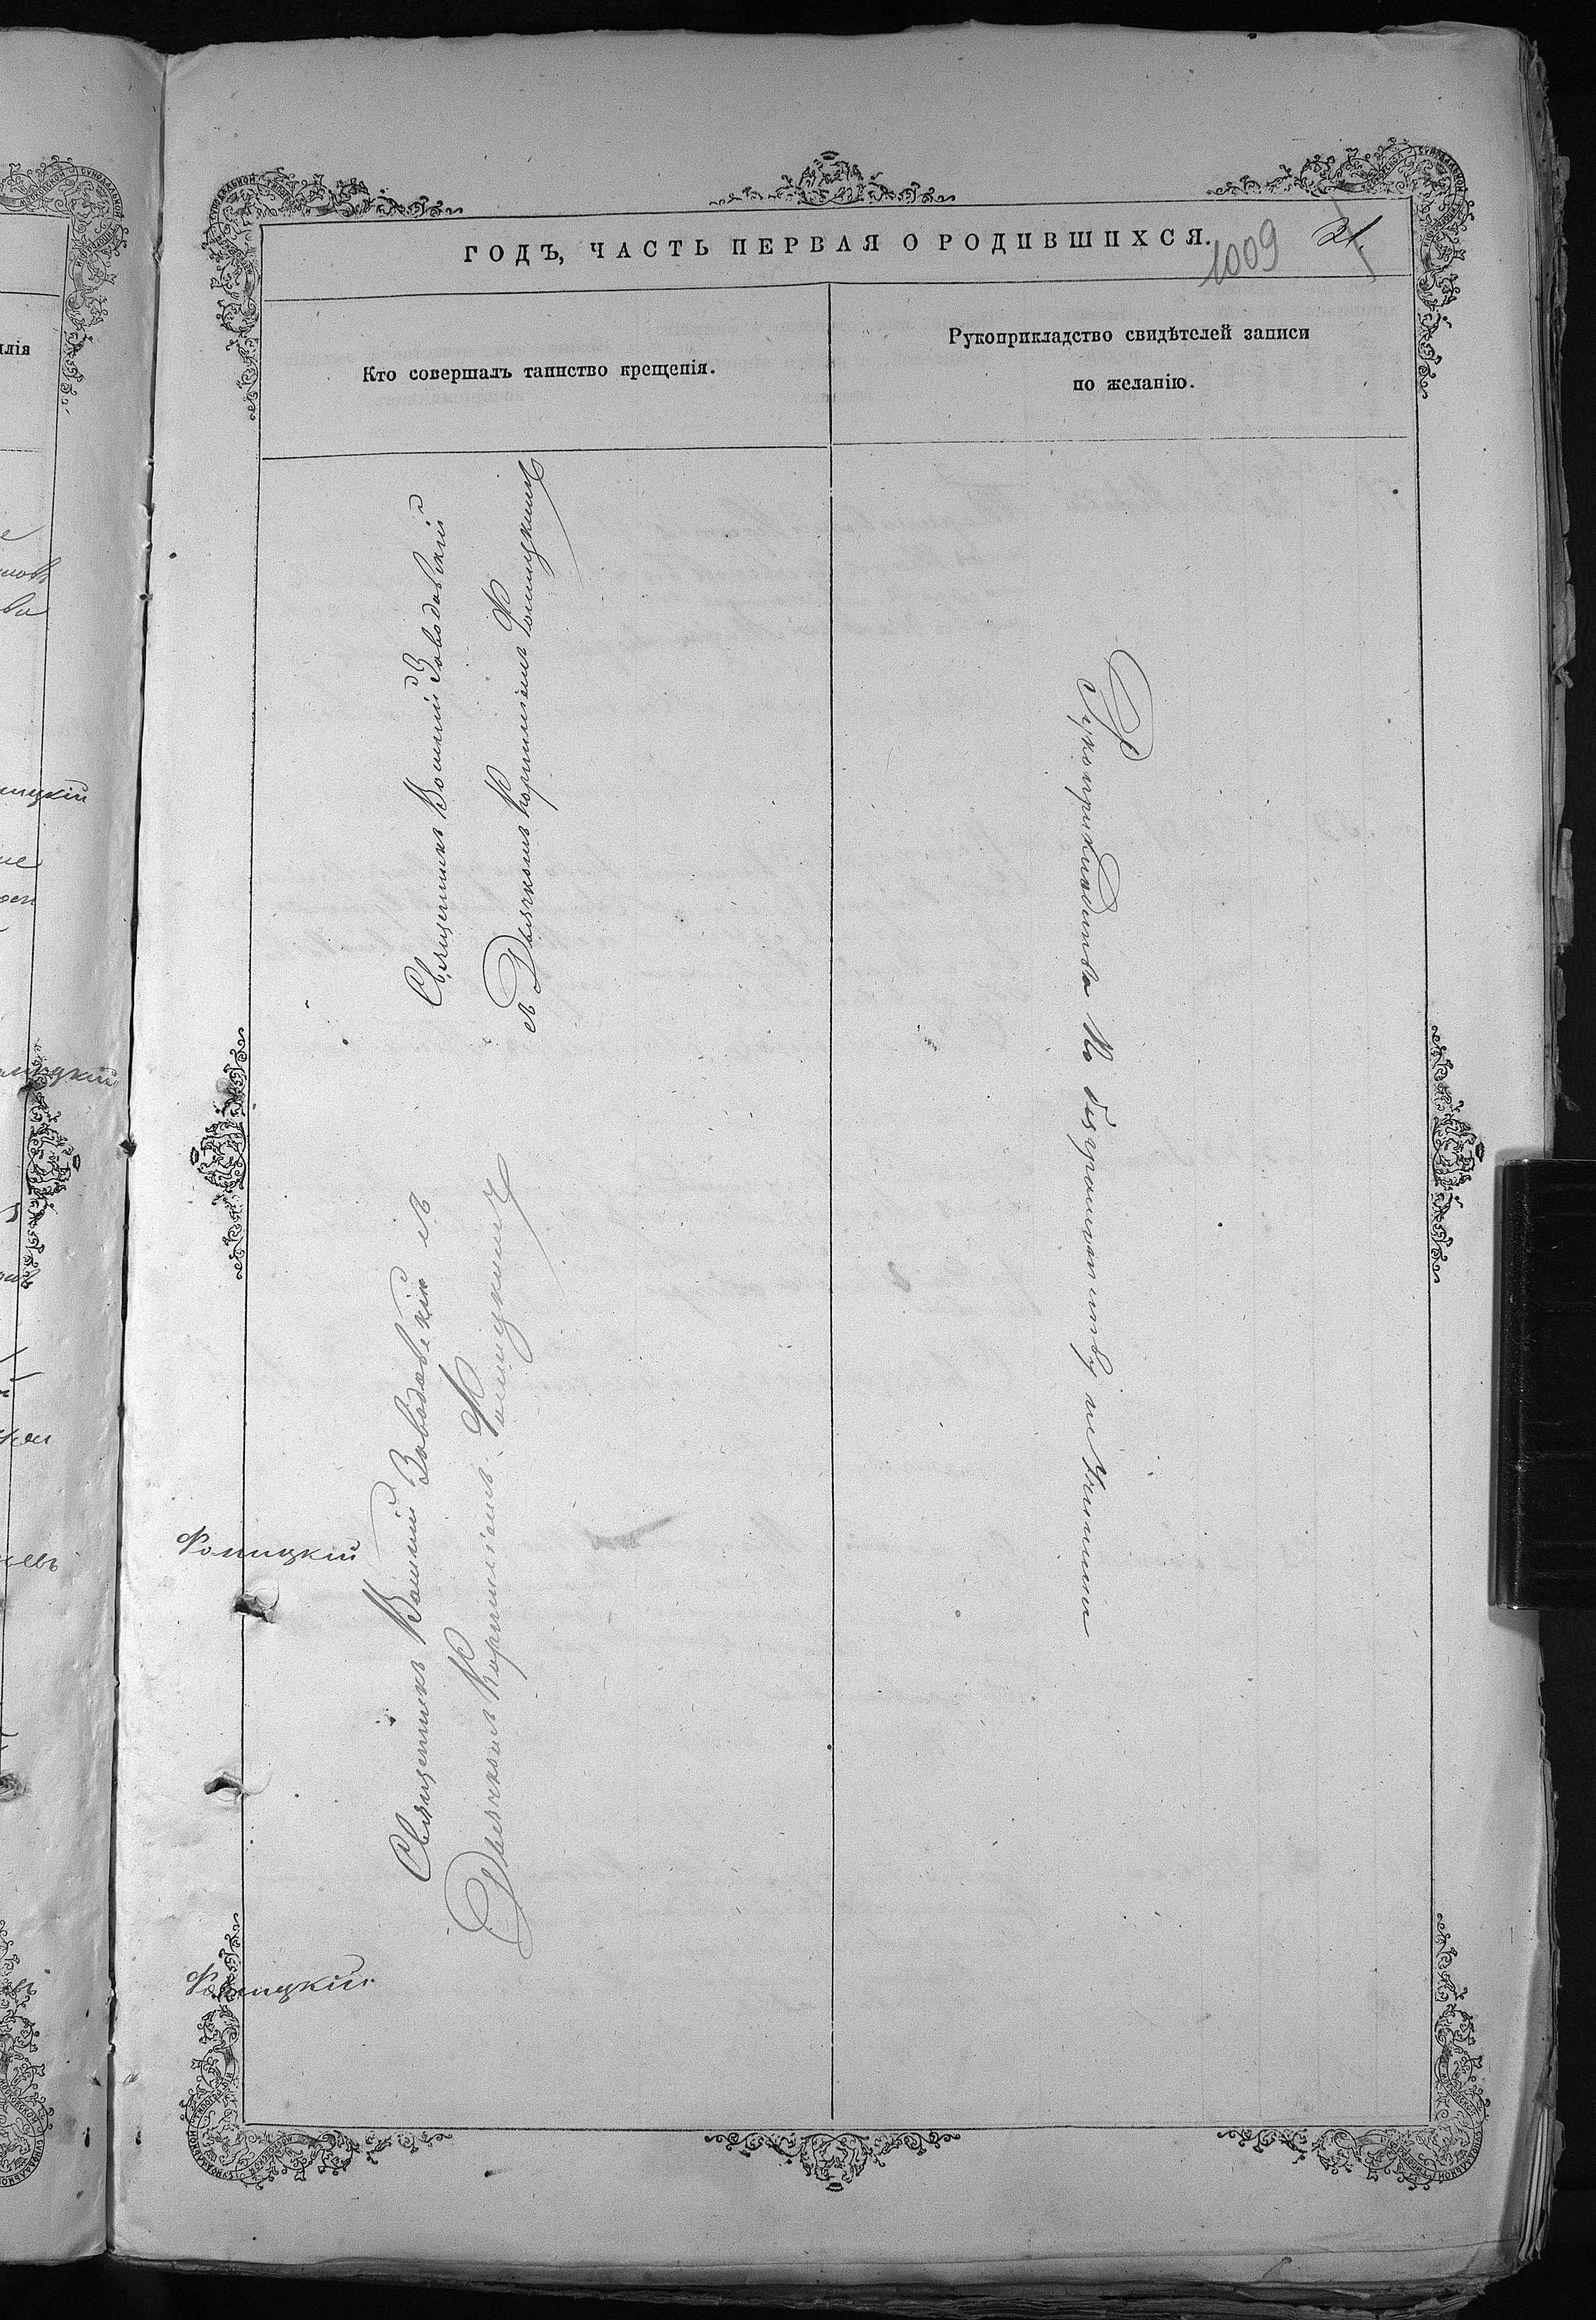 ГОДЪ, ЧАСТЬ ПЕРВАЯ О РОДИВШИХСЯ.
1009
21.
Кто совершалъ таинство крещенія.
Рукоприкладство свидѣтелей записи
по желанію.
Священникъ Василій Заводовскій
съ Дьячкомъ Корниліемъ Фомицкимъ
Рукоприкладства по безграмотству не учинили
Священникъ Василій Заводовскій съ
Дьячкомъ Корниліемъ Фомицкимъ
Фомицкій
Фомицкій